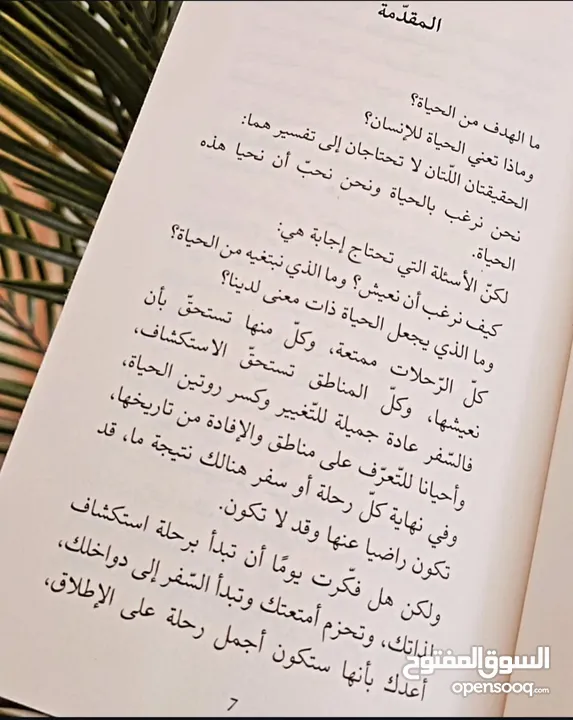 المقدّمة
ما الهدف من الحياة؟
وماذا تعني الحياة للإنسان؟
الحقيقتان اللّتان لا تحتاجان إلى تفسير هما:
نحن نرغب بالحياة ونحن نحبّ أن نحيا هذه
الحياة.
لكنّ الأسئلة التي تحتاج إجابة هي:
كيف نرغب أن نعيش؟ وما الذي نبتغيه من الحياة؟
وما الذي يجعل الحياة ذات معنى لدينا؟
كلّ الرّحلات ممتعة، وكلّ منها تستحقّ بأن
نعيشها، وكلّ المناطق تستحقّ الاستكشاف،
فالسّفر عادة جميلة للتّغيير وكسر روتين الحياة،
وأحيانا للتّعرّف على مناطق والإفادة من تاريخها،
وفي نهاية كلّ رحلة أو سفر هنالك نتيجة ما، قد
تكون راضيا عنها وقد لا تكون.
ولكن هل فكّرت يومًا أن تبدأ برحلة استكشاف
لذاتك، وتحزم أمتعتك وتبدأ السّفر إلى دواخلك،
أعدك بأنها ستكون أجمل رحلة على الإطلاق،
7
السوق المفتوح
opensooq.com